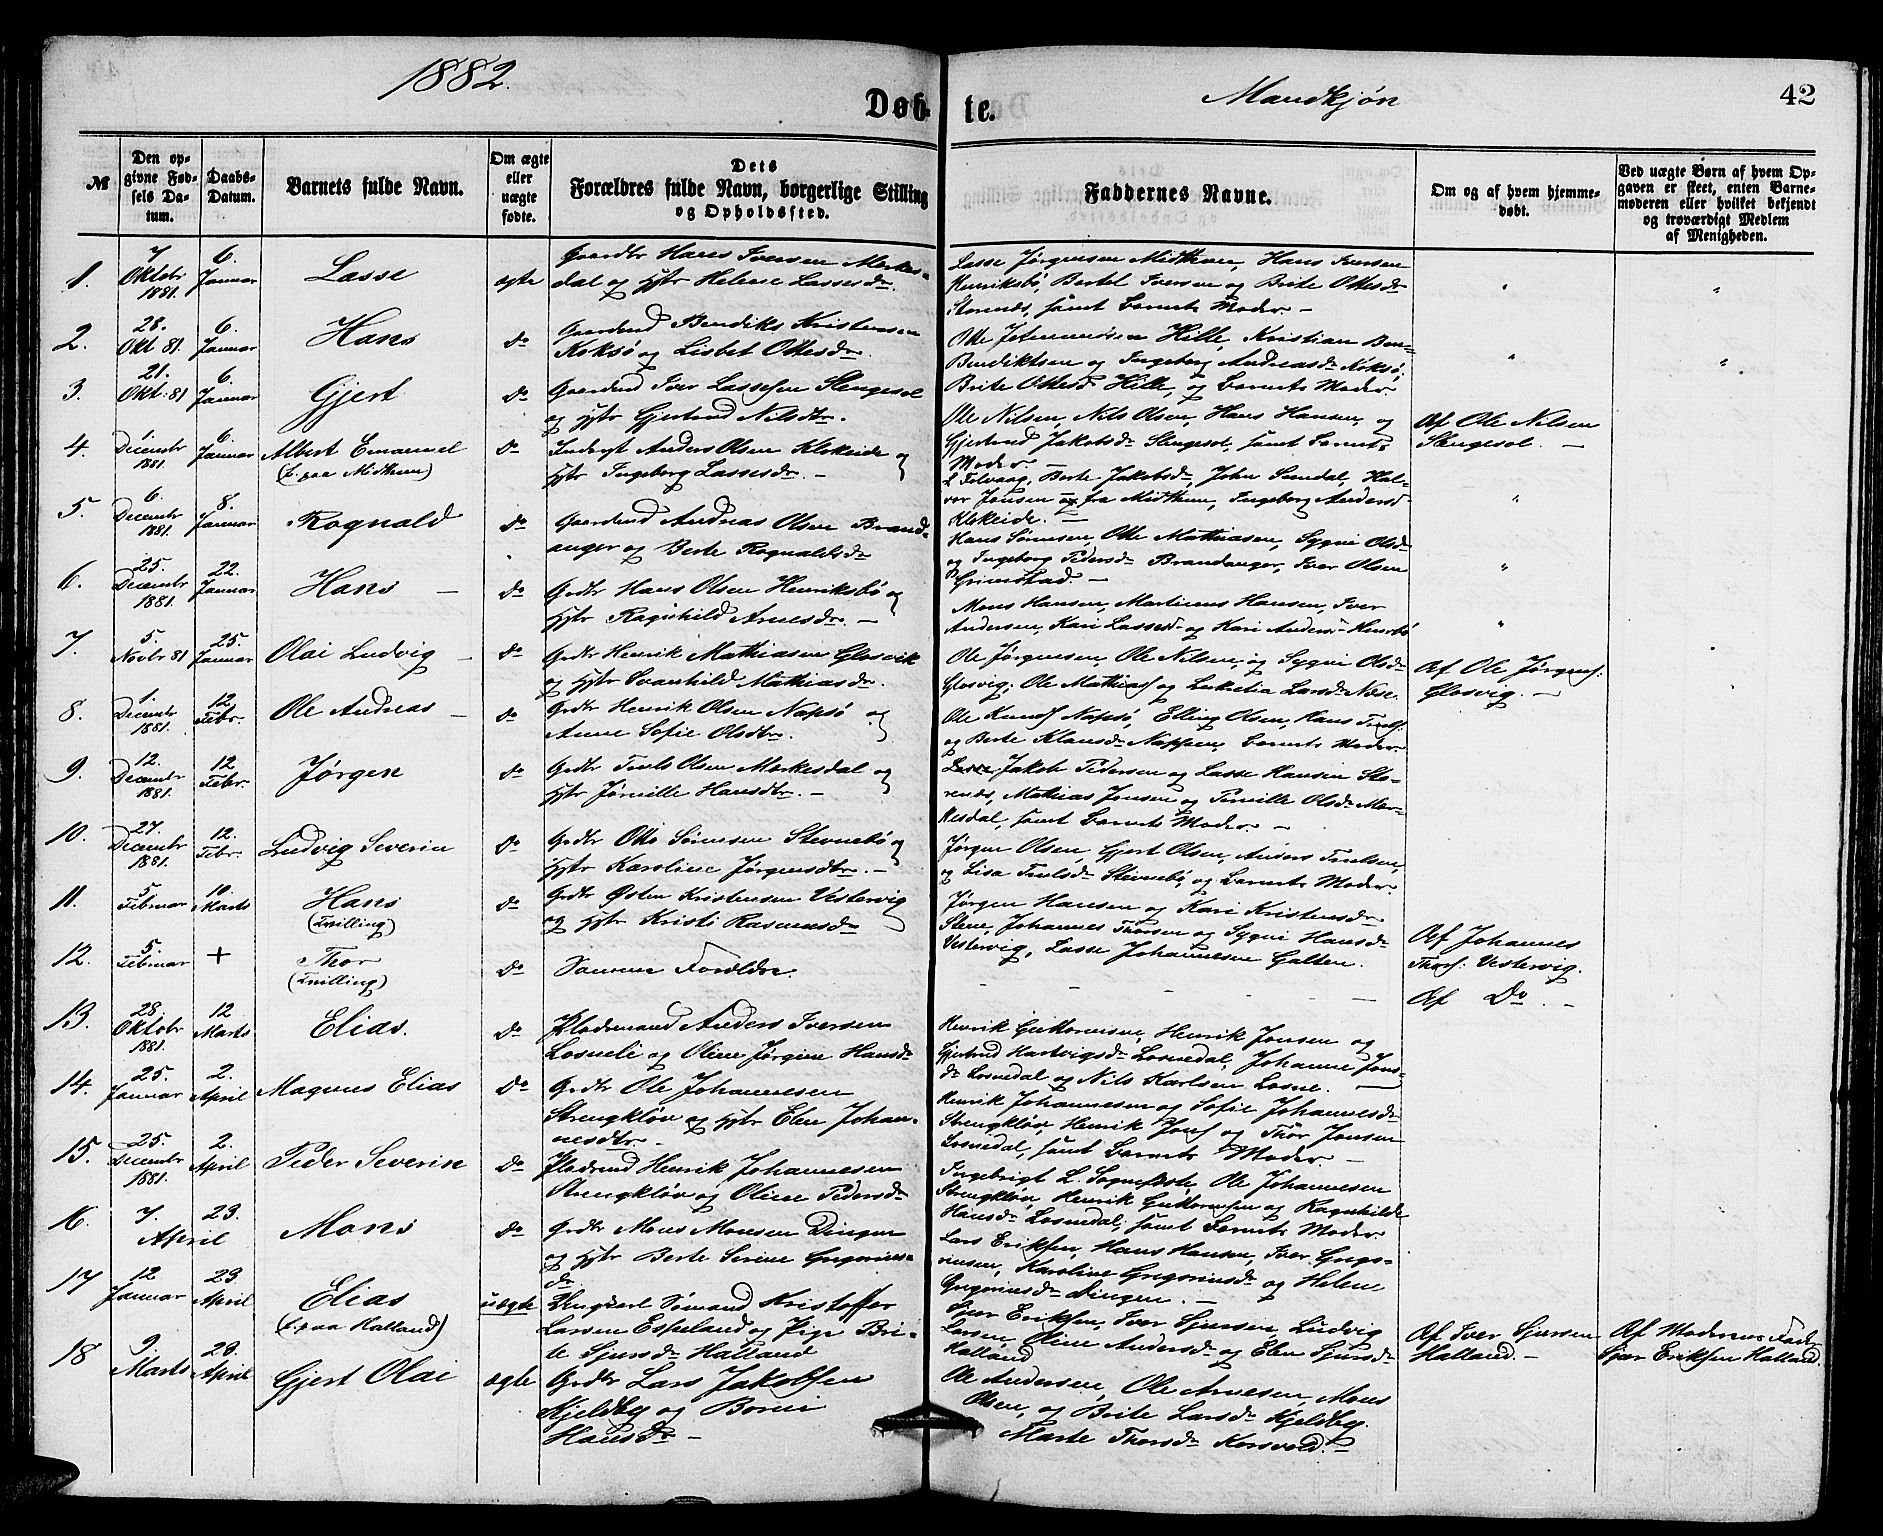 1882.
Døbte.
Mandkjøn
42
№
Den opgivne Fødsels Datum.
Daabs-Datum.
Barnets fulde Navn.
Om ægte eller uægte fødte.
Dets Forældres fulde Navn, borgerlige Stilling og Opholdssted.
Faddernes Navne.
Om og af hvem hjemmedøbt.
Ved uægte Børn af hvem Opgaven er skeet, enten Barnemoderen eller hvilket bekjendt og troværdigt Medlem af Menigheden.
1. 7 Oktobr 1881. 6. Januar Lasse ægte
Gaardbr Hans Iversen Markes-
dal og Hstr Helene Lassesdr.
Lasse Jørgensen Midthun, Hans Iversen
Henriksbö, Bertel Iversen og Brite Ottesdr
Storenes, samt Barnets Moder. —
2. 28. Okt 81. 6. Januar Hans do
Gaardmd Bendiks Kristensen
Koksø og Lisbet Ottesdr.
Otte Hille, Kristian Ben-
Bendiktsen og Ingeborg Andreasdr Koksø,
Brite Ottesd Hille, og Barnets Moder.
3. 21. Okt. 81 6. Januar Gjert do
Gaardmd Iver Lassesen Slengesol
og Hstr Gjertrud Nilsdtr.
Ole Nilsen, Nils Olsen, Hans Hansen, og
Gjertrud Jakobsdr Slengesol, samt Barnets
Moder. —
Af Ole Nilsen
Slengesol. —
4. 1. Decembr 1881. 6. Januar Albert Emanuel do
(f. paa Midthun)
Inderst Anders Olsen Klekeide og
Hstr Ingeborg Lassesdr. —
Berte Jakobsdr, John Hal-
vor Jonsen fra Midthun, Ingeborg Andersd
Klekeide. —
5. 6. Decembr 1881. 8. Januar Rognald do
Gaardmd Andreas Olsen Brand-
anger og Berte Rognaldsdr
Hans Sörensen, Otte Mathiasen, Sygni Olsd
og Ingeborg Pedersdr Brandanger, Iver Olsen
Grimstad. —
6. 25. Decembr 1881. 22. Januar Hans — do
Grdbr Hans Olsen Henriksbø og
Hstr Ragnhild Arnesdr. —
Mons Hansen, Martinus Hansen, Iver
Andersen, Kari Lassesdr og Kari Andersd Henrbö
7. 5. Novbr 81 25. Januar Olai Ludvig — do
Grdbr Henrik Mathiasen Glosvik
og Hstr Svanhild Mathiasdr.
Ole Jørgensen, Ole Nilsen, og Sygni Olsdr
Glosvig; Ole Mathias og Lukelia Larsdr Nese.
Af Ole Jørgens.
Glosvig. —
8. 1. Decembr 1881. 12 Febr. Ole Andreas — do
Grdbr Henrik Olsen Napsö og
Anne Sofie Olsdtr.
Ole Napsö, Elling Olsen, Hans
og Berte Klausdr Nappen, Barnets Moder.
9. 12. Decembr 1881. 12 Febr. Jørgen do
Grdbr Truls Olsen Markesdal og
Hstr Jørnille Hansdtr. —
Jakob Pedersen og Lasse Hansen Sto-
renes, Mathias Jonsen og Pernille Olsdr Mar-
kesdal, samt Barnets Moder —
10. 27. Decembr 1881. 12. Febr. Ludvig Severin do
Grdbr Otto Sørensen Stevnebø og
Hstr Karoline Jørgensdtr. —
Jørgen Olsen, Gjert Olsen, Anders Trulsen,
og Lisa Trulsdr Stevnebø, og Barnets Moder.
11. 5. Februar 10. Marts Hans do
(Tvilling)
Grdbr Østen Kristensen Vestervig
og Hstr Kristi Rasmusdr
Jørgen Hansen og Kari Kristensdr
Stene, Johannes Thorsen og Sygni Hansdr
Vestervig, Lasse Johannesen Galten.
Af Johannes
Thors. Vestervig.
12. 5. Februar + Thor do
(Tvilling)
Samme Forældre.
Af Do. —
13. 28. Oktobr 1881. 12 Marts Elias. do
Pladsmand Anders Iversen
Losneli og Oline Jørgine Hansdr
Henrik Guttormsen, Henrik Jonsen og
Gjertrud Hartvigsdr Losnedal, Johanne Jons-
dr Losnedal og Nils Karlsen Losne. —
14. 25. Januar 2. April Magnus Elias do
Grdbr Ole Johannesen
Strengkløv og Hstr Elen Johan-
nesdtr. —
Henrik Johannesen og Sofie Johannesdr
Strengkløv, Henrik Jons og Thor Jonsen
Losnedal, samt Barnets Moder. —
15. 25. Decembr 1881. 2. April Peder Severin do
Pladsmd Henrik Johannesen
Strengkløv og Oline Pedersdr
Ingebrigt L. Sognefæste, Ole Johannesen
Strengkløv, Henrik Guttormsen og Ragnhilde
Hansdr Losnedal; samt Barnets Moder
16. 7. April 23. Mons do
Grdbr Mons Monsen Dingen
og Hstr Berte Serine Gregorius-
dr.
Lars Eriksen, Hans Hansen, Iver Grego-
riusen, Karoline Gregoriusdr og Helene
Gregoriusdr Dingen. —
17 12 Januar 23 April Elias uægte
(f. paa Halland)
Ungkarl Sömand Kristoffer
Larsen Espeland og Pige Bri-
te Sjursdr Halland
Sjur Eriksen, Iver Sjursen, Ludvig
Larsen, Oline Andersdr og Elen Sjursdr
Halland
Af Iver Sjursen
Halland. —
Af Moderens Fader
Sjur Eriksen Halland.
18 9. Marts 23. April Gjert Olai ægte
Grdbr Lars Jakobsen
Kjeldby og Borni
Hansdr —
Ole Andersen, Ole Arnesen, Mons
Olsen, og Brite Larsdr Kjeldby.
Marte Thorsdr